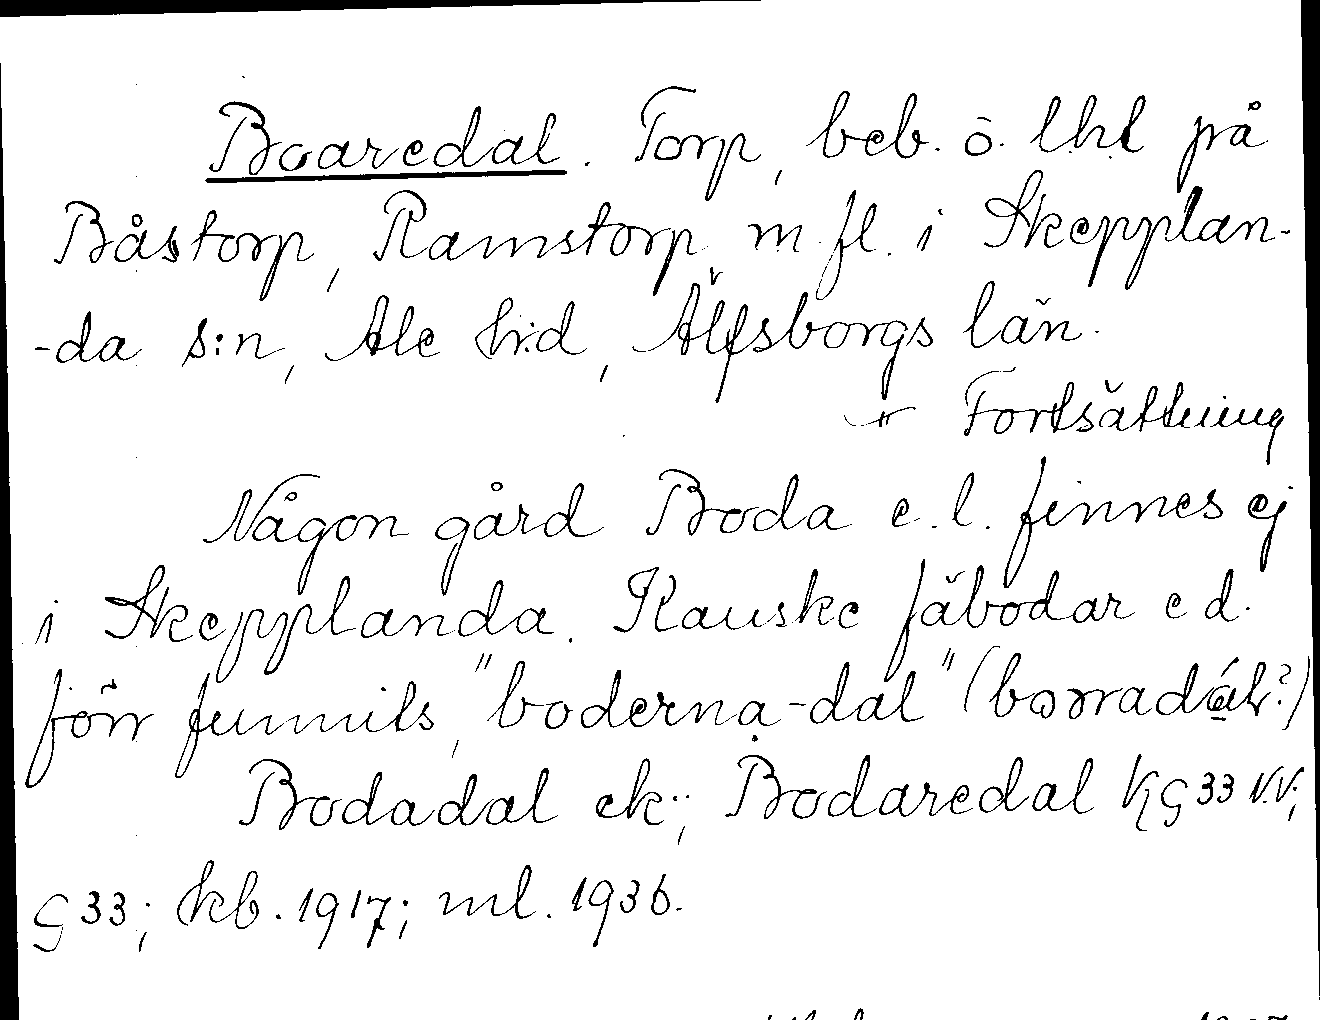 Boaredal. Torp, beb. o. lhl på
Båstorp, Ramstorp m fl. i Skepplan-
-da s:n, Ale h:d, Älfsborgs län.
Fortsättning
Någon gård Boda e. l. finnes ej
i Skepplanda. Kanske fäbodar e d.
förr funnits, "boderna-dal"
Bodadal ek.; Bodaredal KG33 V.V;
G33; kb. 1917; ml. 1936.